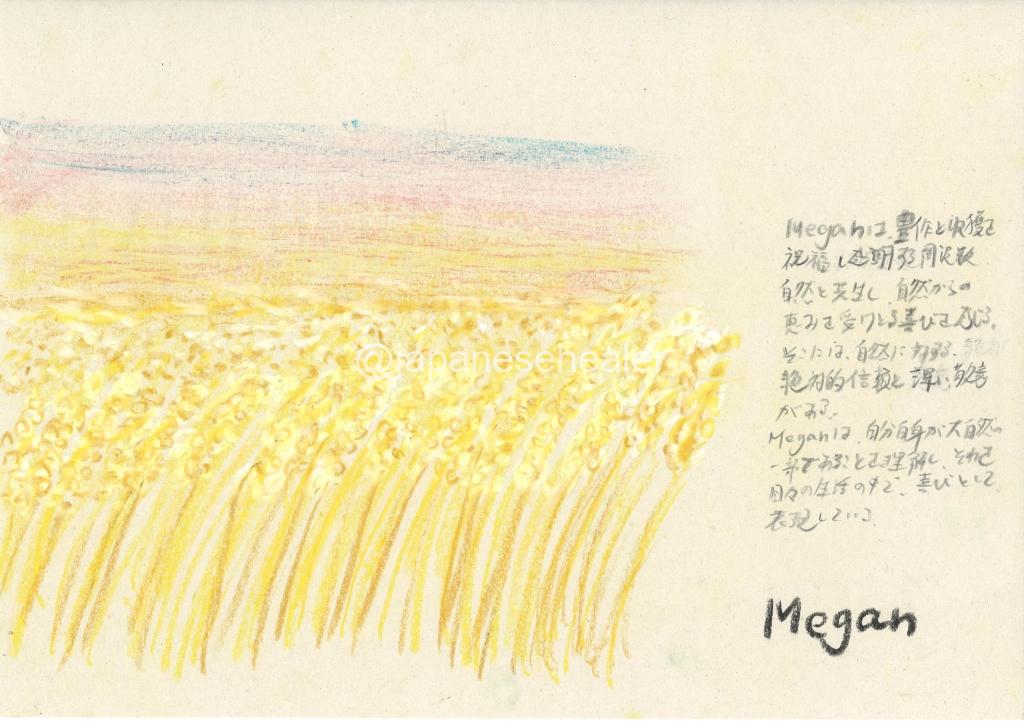 @japanesehealer
Meganは、豊作と収穫を
祝福し 周波数
自然と共生し、自然からの
恵みを受けとる喜びを
そこには、自然に対する、
絶対的信頼と深い
がある。
Meganは、自分自身が大自然の
一部であることを理解し、それを
日々の生活の中で、喜びとして
表現している。
Megan